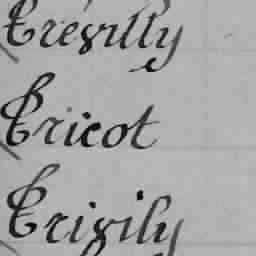 Trévilly
Tricot
Trixily